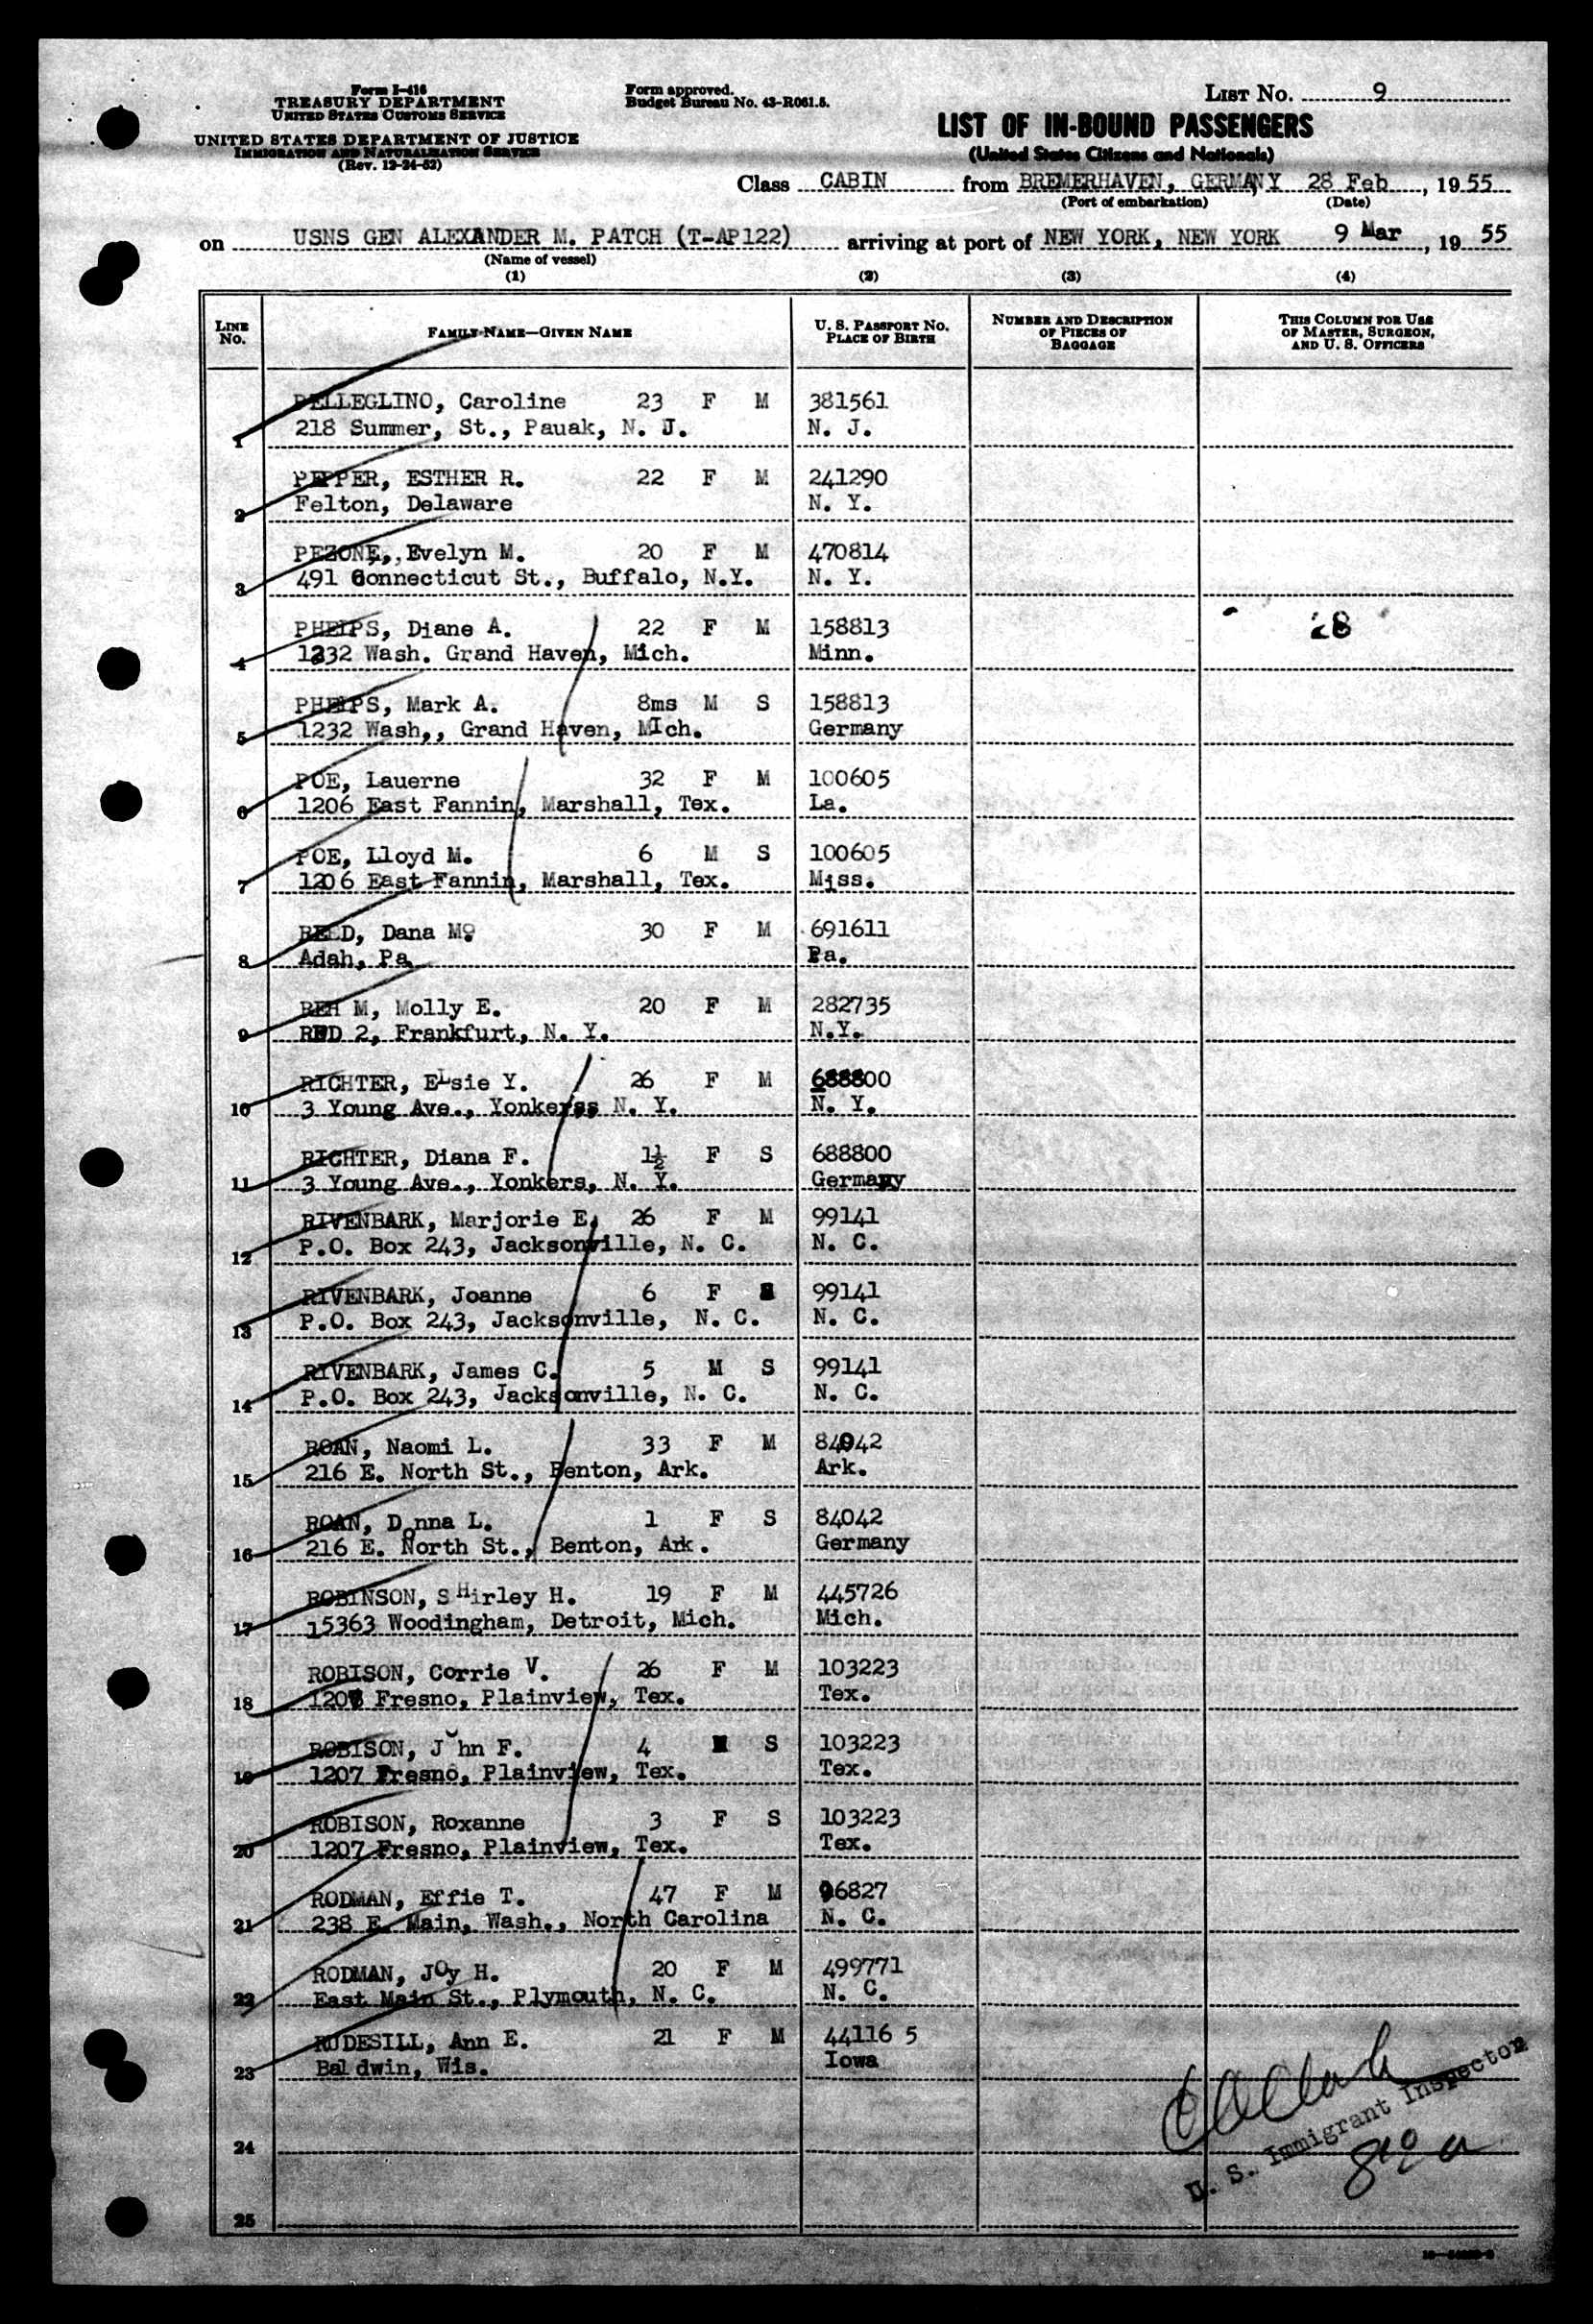 Form I-416
TREASURY DEPARTMENT
UNITED STATES CUSTOMS SERVICE
UNITED STATES DEPARTMENT OF JUSTICE
IMMIGRATION AND NATURALIZATION SERVICE
(Rev. 12-24-52)
Form approved.
Budget Bureau No. 43-R061.5.
LIST No. 9
LIST OF IN-BOUND PASSENGERS
(United States Citizens and Nationals)
Class CABIN from BREMERHAVEN, GERMANY 28 Feb, 1955
(Port of embarkation) (Date)
on USNS GEN ALEXANDER M. PATCH (T-AP122) arriving at port of NEW YORK, NEW YORK 9 Mar, 19 55
(Name of vessel)
(1) (2) (3) (4)
LINE No. FAMILY NAME—GIVEN NAME U. S. PASSPORT No. PLACE OF BIRTH NUMBER AND DESCRIPTION OF PIECES OF BAGGAGE THIS COLUMN FOR USE OF MASTER, SURGEON, AND U. S. OFFICERS
PELLEGLINO, Caroline 23 F M 381561
1 218 Summer, St., Pauak, N. J. N. J.
PEPPER, ESTHER R. 22 F M 241290
2 Felton, Delaware N. Y.
PEZONE,, Evelyn M. 20 F M 470814
3 491 Connecticut St., Buffalo, N.Y. N. Y.
PHELPS, Diane A. 22 F M 158813 28
4 1232 Wash. Grand Haven, Mich. Minn.
PHELPS, Mark A. 8ms M S 158813
5 1232 Wash,, Grand Haven, MIch. Germany
POE, Lauerne 32 F M 100605
6 1206 East Fannin, Marshall, Tex. La.
POE, Lloyd M. 6 M S 100605
7 1206 East Fannin, Marshall, Tex. Miss.
REED, Dana Mc 30 F M 691611
8 Adah, Pa Pa.
REH M, Molly E. 20 F M 282735
9 RFD 2, Frankfurt, N. Y. N.Y.
RICHTER, ELsie Y. 26 F M 688800
10 3 Young Ave., Yonkers, N. Y. N. Y.
RICHTER, Diana F. 1½ F S 688800
11 3 Young Ave., Yonkers, N. Y. Germany
RIVENBARK, Marjorie E. 26 F M 99141
12 P.O. Box 243, Jacksonville, N. C. N. C.
RIVENBARK, Joanne 6 F S 99141
13 P.O. Box 243, Jacksonville, N. C. N. C.
RIVENBARK, James C. 5 M S 99141
14 P.O. Box 243, Jacksonville, N. C. N. C.
ROAN, Naomi L. 33 F M 84042
15 216 E. North St., Benton, Ark. Ark.
ROAN, Donna L. 1 F S 84042
16 216 E. North St., Benton, Ark. Germany
ROBINSON, SHirley H. 19 F M 445726
17 15363 Woodingham, Detroit, Mich. Mich.
ROBISON, Corrie V. 26 F M 103223
18 1207 Fresno, Plainview, Tex. Tex.
ROBISON, John F. 4 M S 103223
19 1207 Fresno, Plainview, Tex. Tex.
ROBISON, Roxanne 3 F S 103223
20 1207 Fresno, Plainview, Tex. Tex.
RODMAN, Effie T. 47 F M 96827
21 238 E. Main, Wash., North Carolina N. C.
RODMAN, JOy H. 20 F M 499771
22 East Main St., Plymouth, N. C. N. C.
RUDESILL, Ann E. 21 F M 44116 5
23 Baldwin, Wis. Iowa
24
U. S. Immigrant Inspector
25